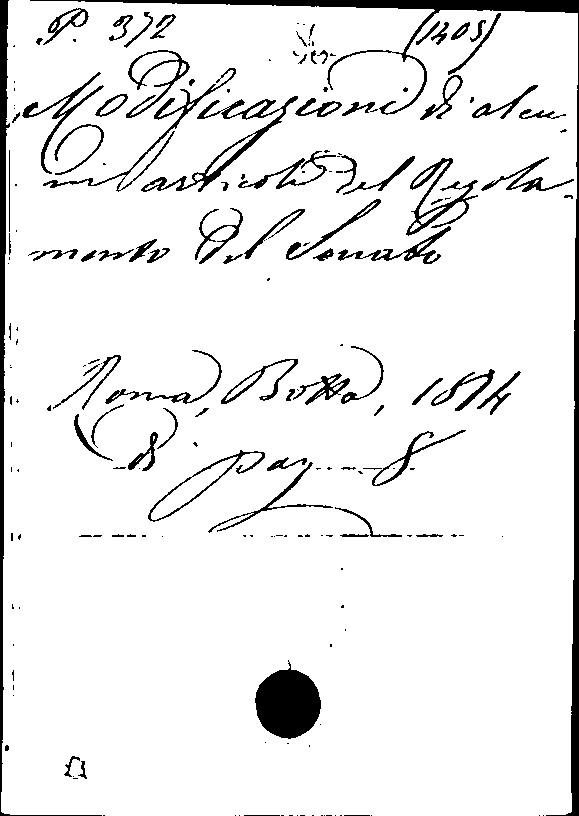 P. 372 (1405)
Modificazioni di alcu-
ni articoli del Regola-
mento del Senato
Roma, Botta, 1874
di pag. 8